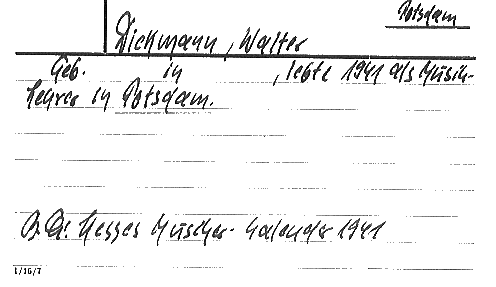 Potsdam
Dickmann, Walter
Geb. in , lebte 1941 als Musik-
lehrer in Potsdam.
Hesses Musiker-Kalender 1941
1/16/7